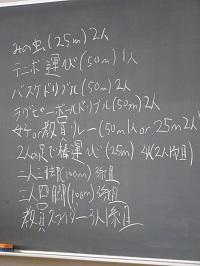 みの虫(25m)2人
テニボ運び(50m)1人
バスケドリブル(50m)2人
ラグビーボールドリブル(50m)2人
女子or教員リレー(50m1人or 25m2人)
2人の足で棒運び(25m) 4人(2人組)
二人三脚(100m)3組
三人四脚(100m)3組
教員 3人1組